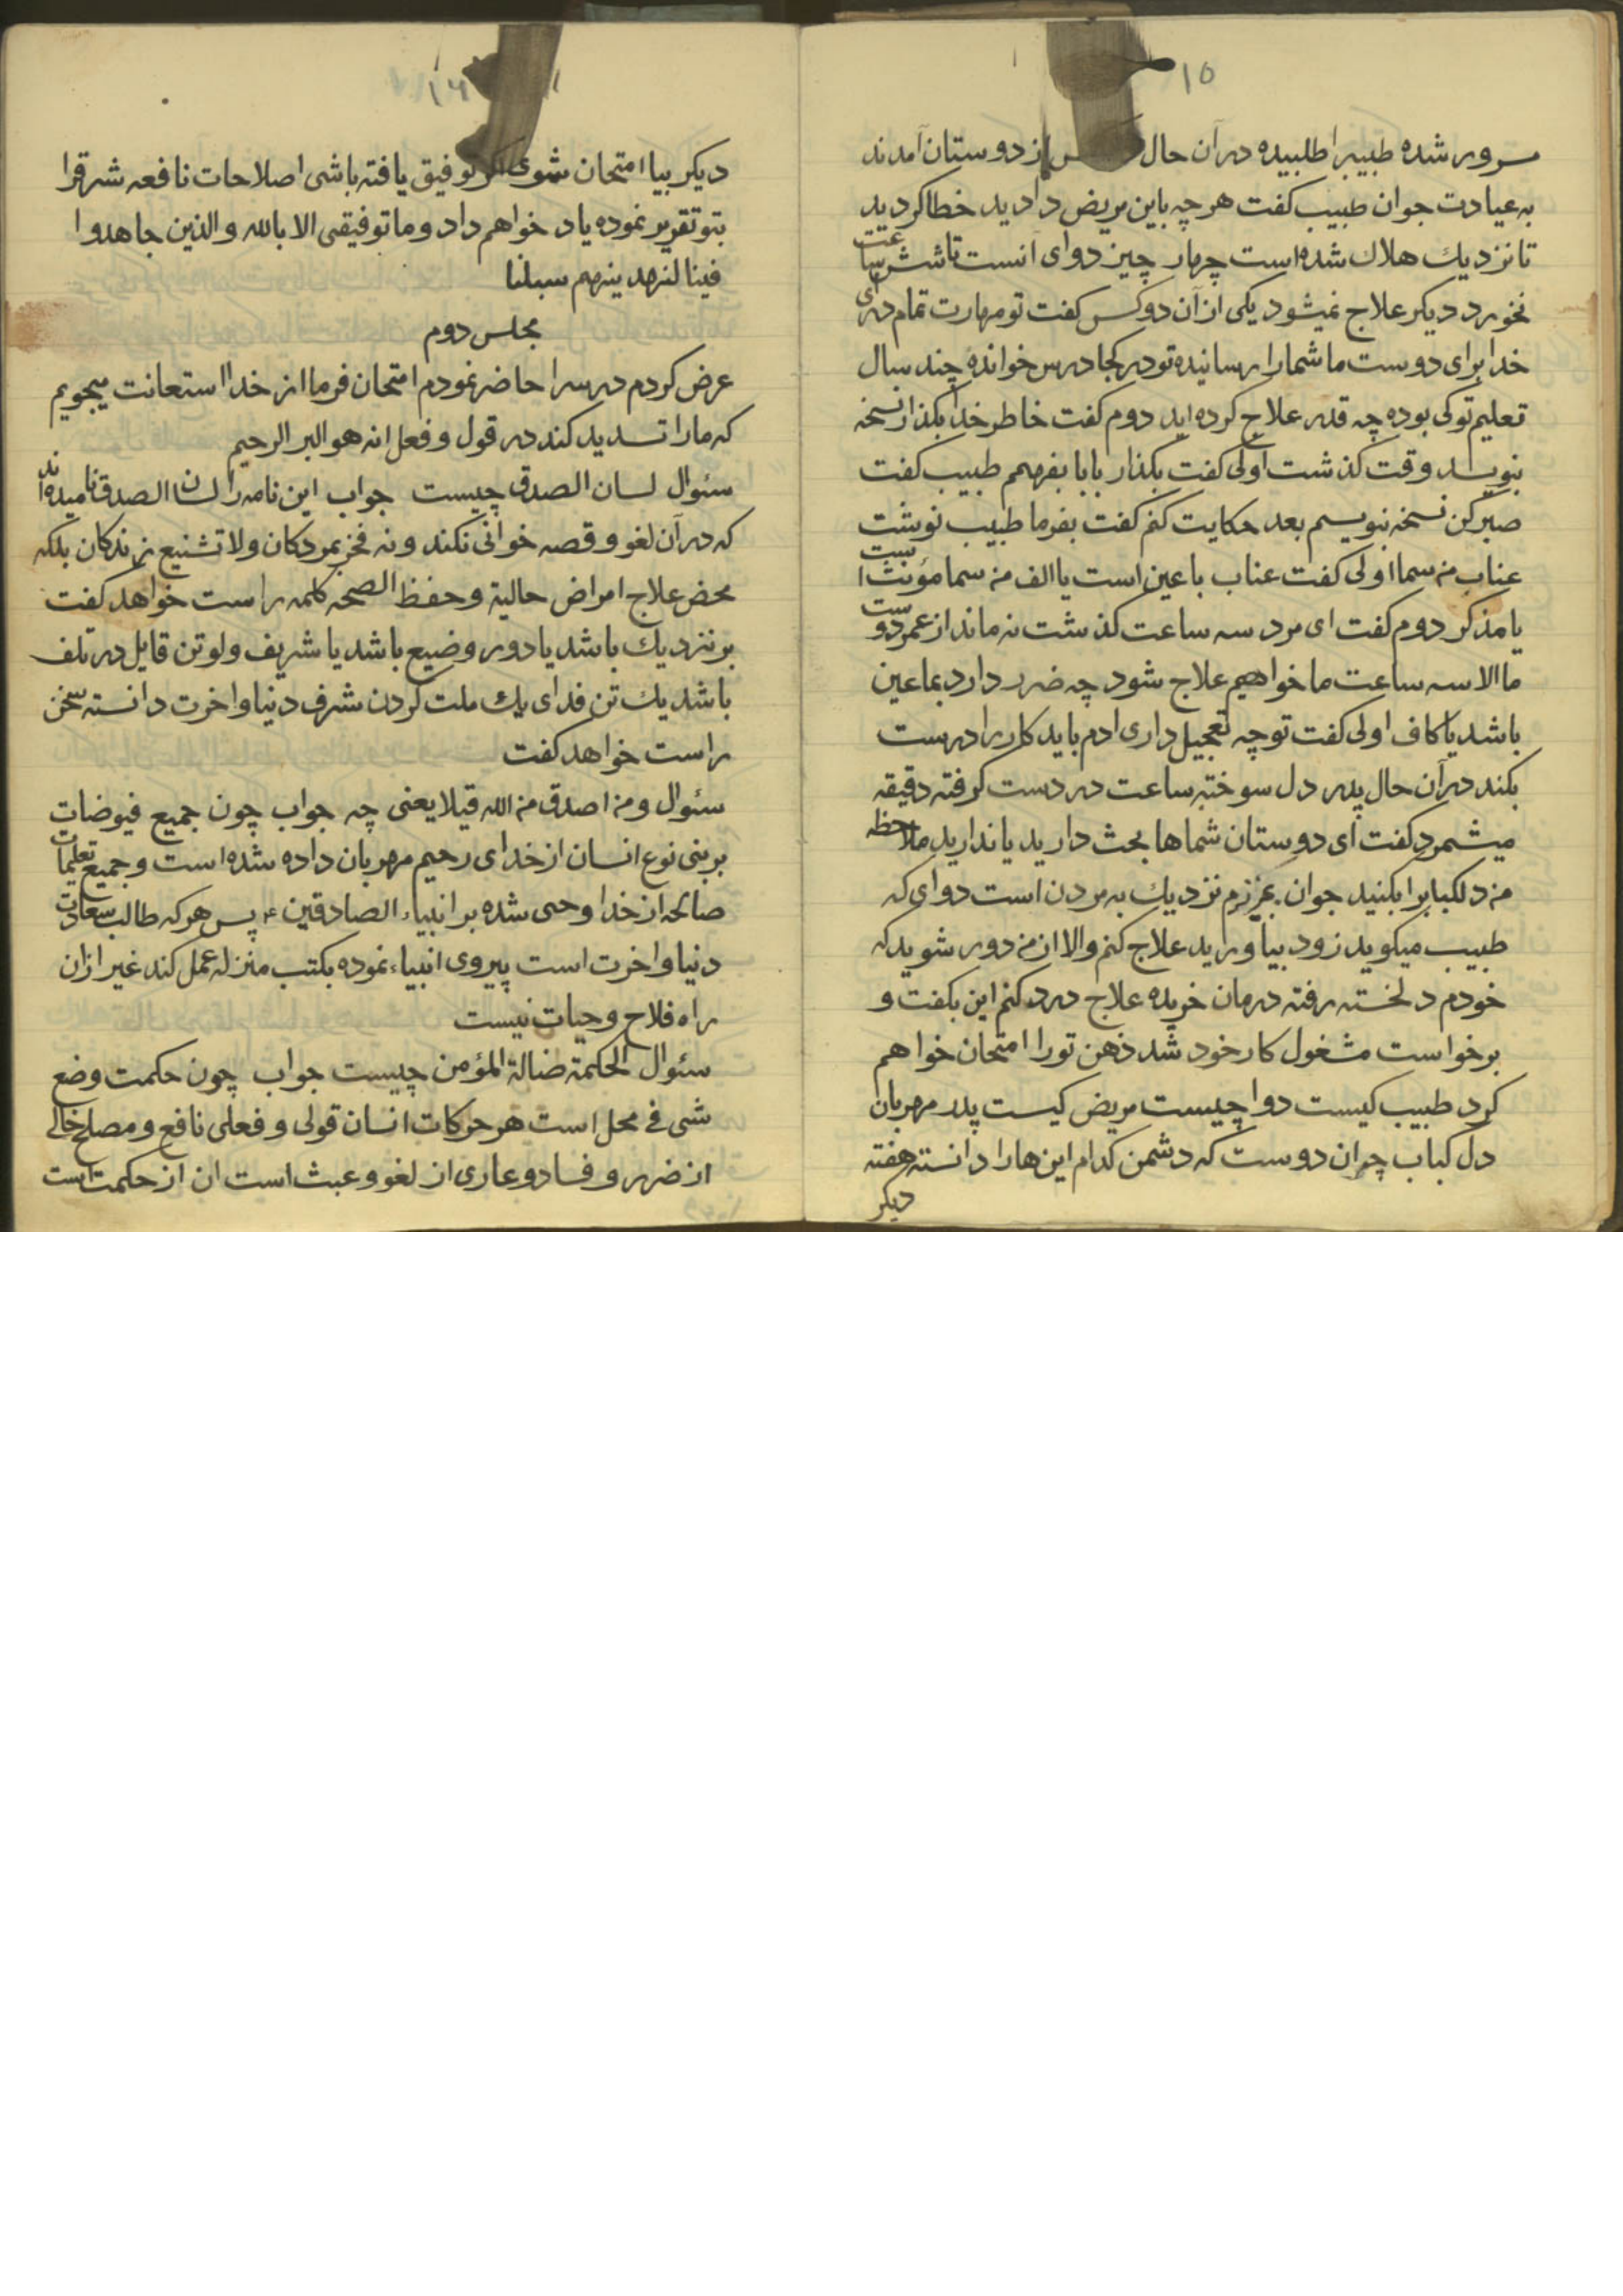 ١٥
سرور شده طبیبرا طلبیده در آن حال از دوستان آمدند
به عیادت جوان طبیب کفت هر چه باین مریض دادید خطا کردید
تا نزدیك هلاك شده است چهار چیز دوای آنست تا شش ساعت
نخورد دیکر علاج نمیشود یکی از آن دو کس کفت تو مهارت تمام داری
خدا برای دوست ما شمارا رسانیده تو در کجا درس خوانده چند سال
تعلیم تو کی بوده چه قدر علاج کرده اید دوم کفت خاطر خدا بکذار نسخه
بنویسد وقت کذشت اولی کفت بکذار بابا بفهمم طبیب کفت
صبر کن نسخه بنویسم بعد حکایت کنم کفت بفرما طبیب نوشت
عناب من سما اولی کفت عناب با عین است یا الف من سما مؤنث است
یا مذکر دوم کفت ای مرد سه ساعت کذشت نه ماند از عمر دوست
ما الا سه ساعت ما خواهیم علاج شود چه ضرر دارد بما عین
باشد یا کاف اولی کفت تو چه تعجیل داری ادم باید کار را درست
بکند در آن حال پدر دل سوخته ساعت در دست کرفته دقیقه
میشمرد کفت ای دوستان شماها بحث دارید یا ندارید ملاحظه
من دلکبابرا بکنید جوان عزیزم نزدیك به مردن است دوای که
طبیب میکوید زود بیاورید علاج کنم والا از من دور شوید که
خودم دلخسته رفته درمان خریده علاج درد کنم این بکفت و
برخواست مشغول کار خود شد ذهن تورا امتحان خواهم
کرد طبیب کیست دوا چیست مریض کیست پدر مهربان
دل کباب چه ان دوست که دشمن کدام این هارا دانسته هفته
دیکر
١٦
دیکر بیا امتحان شوی اکر توفیق یافته باشی اصلاحات نافعه شرقرا
بتو تقریر نموده یاد خواهم داد وما توفیقی الا بالله والذین جاهدوا
فینا لنهدینهم سبلنا
مجلس دوم
عرض کردم درسرا حاضر نمودم امتحان فرما از خدا استعانت میجویم
که مارا تسدید کند در قول و فعل انه هو البر الرحیم
سئوال لسان الصدق چیست جواب این نامه را لسان الصدق نامیده اند
که در آن لغو و قصه خوانی نکند و نه فخر بمردکان ولا تشنیع زندکان بلکه
محض علاج امراض حالیة وحفظ الصحه کلمه راست خواهد کفت
بر نزدیك باشد یا دور وضیع باشد یا شریف ولو تن قایل در تلف
باشد یك تن فدای یك ملت کردن شرف دنیا واخرت دانسته سخن
راست خواهد کفت
سئوال ومن اصدق من الله قیلا یعنی چه جواب چون جمیع فیوضات
بر بنی نوع انسان از خدای رحیم مهربان داده شده است و جمیع تعلیمات
صالحه از خدا وحی شده بر انبیاء الصادقین ع پس هر که طالب سعادت
دنیا واخرت است پیروی انبیاء نموده بکتب منزله عمل کند غیر از ان
راه فلاح وحیات نیست
سئوال الحکمة ضالة المؤمن چیست جواب چون حکمت وضع
شی فی محل است هر حرکات انسان قولی و فعلی نافع و مصلح خالی
از ضرر و فساد و عاری از لغو و عبث است ان از حکمت است